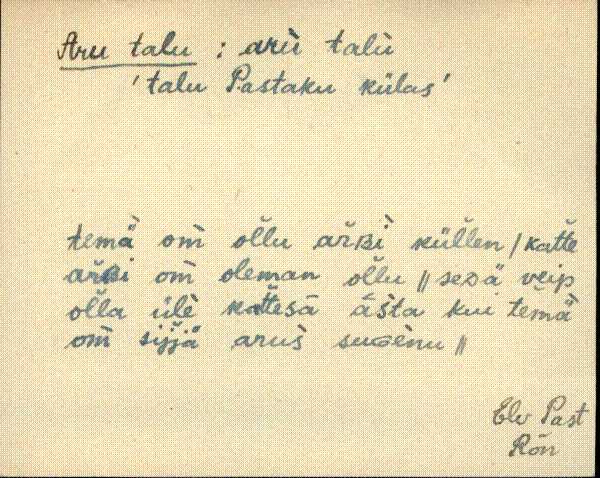 Aru talu : arù talù
'talu Pastaku külas'
temä̀ om̀ ol̆lu ar̆ʙì kül̆len / kat̆te
ar̆ʙi om̀ oleman ol̆lu // seᴅä veip
ol̆la ülè kat̆tesā ās̆ta kui tem̆ä̀
om̀ sijjä arus̀ suɢènu //
Elv Past
Rõn